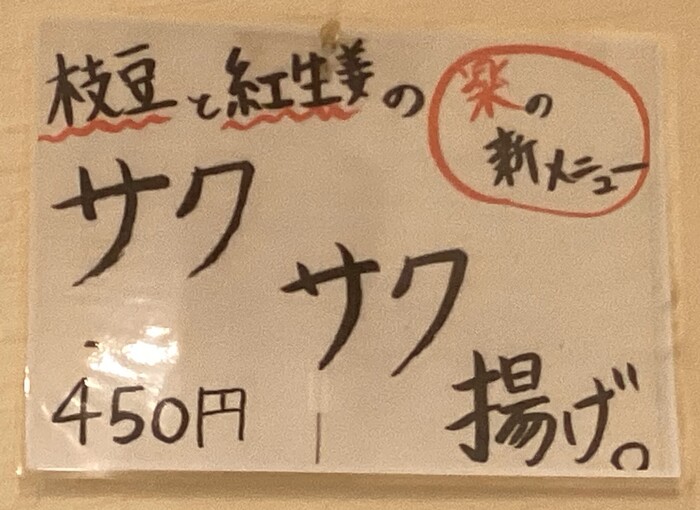 枝豆と紅生姜の
楽の
新メニュー
サク
サク
揚げ。
450円